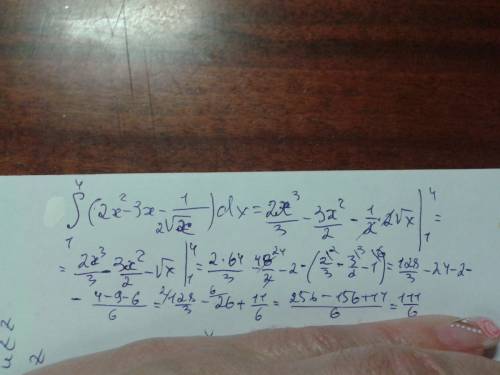 ∫₁⁴ (2x² - 3x - 1/(2√x)) dx = 2x³/3 - 3x²/2 - 1/2 · 2√x |₁⁴ =
= 2x³/3 - 3x²/2 - √x |₁⁴ = 2·64/3 - 48/2 - 2 - (2/3 - 3/2 - 1) = 128/3 - 24 - 2 -
- (4-9-6)/6 = 128/3 - 26 + 11/6 = (256-156+11)/6 = 111/6